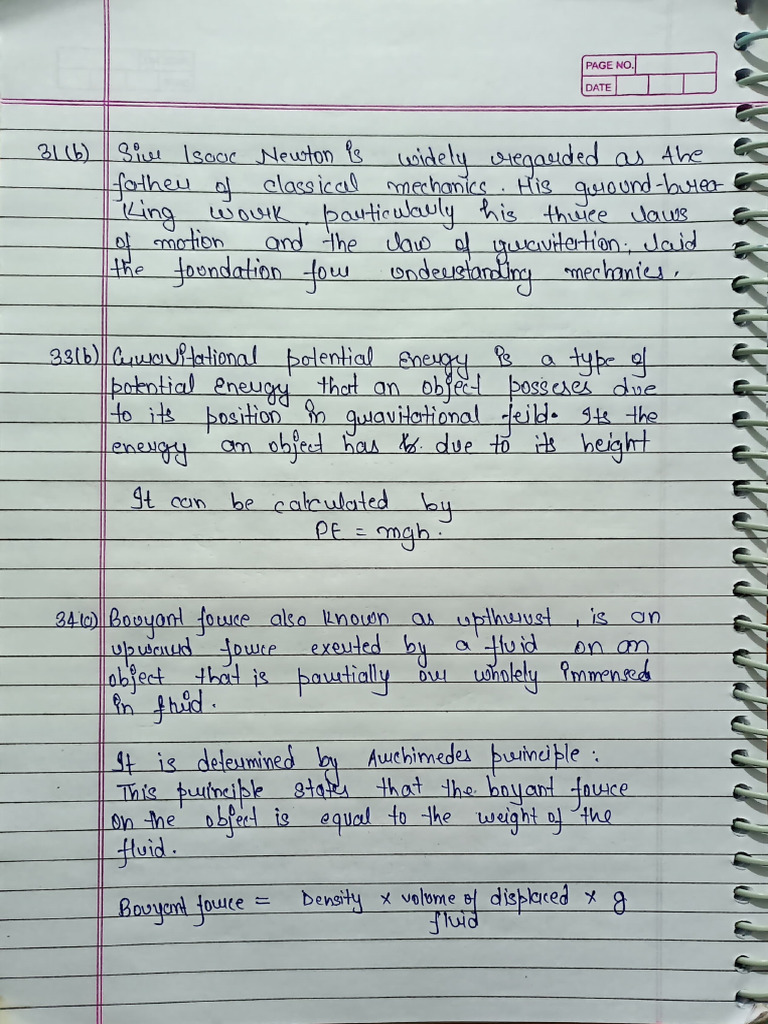 PAGE NO.
DATE
31(b) Sir Isaac Newton is widely regarded as the
father of classical mechanics. His ground-brea-
king work, particularly his three laws
of motion and the law of gravitation; laid
the foundation for understanding mechanics.
33(b) Gravitational potential energy is a type of
potential energy that an object posseses due
to its position in gravitational feild. Its the
energy an object has due to its height
It can be calculated by
PE = mgh.
34(c) Bouyant force also known as upthrust, is an
upward force exerted by a fluid on an
object that is partially or wholely immensed
in fluid.
It is determined by Archimedes principle:
This principle states that the boyant force
on the object is equal to the weight of the
fluid.
Bouyant force = Density x volume of displaced x g
fluid